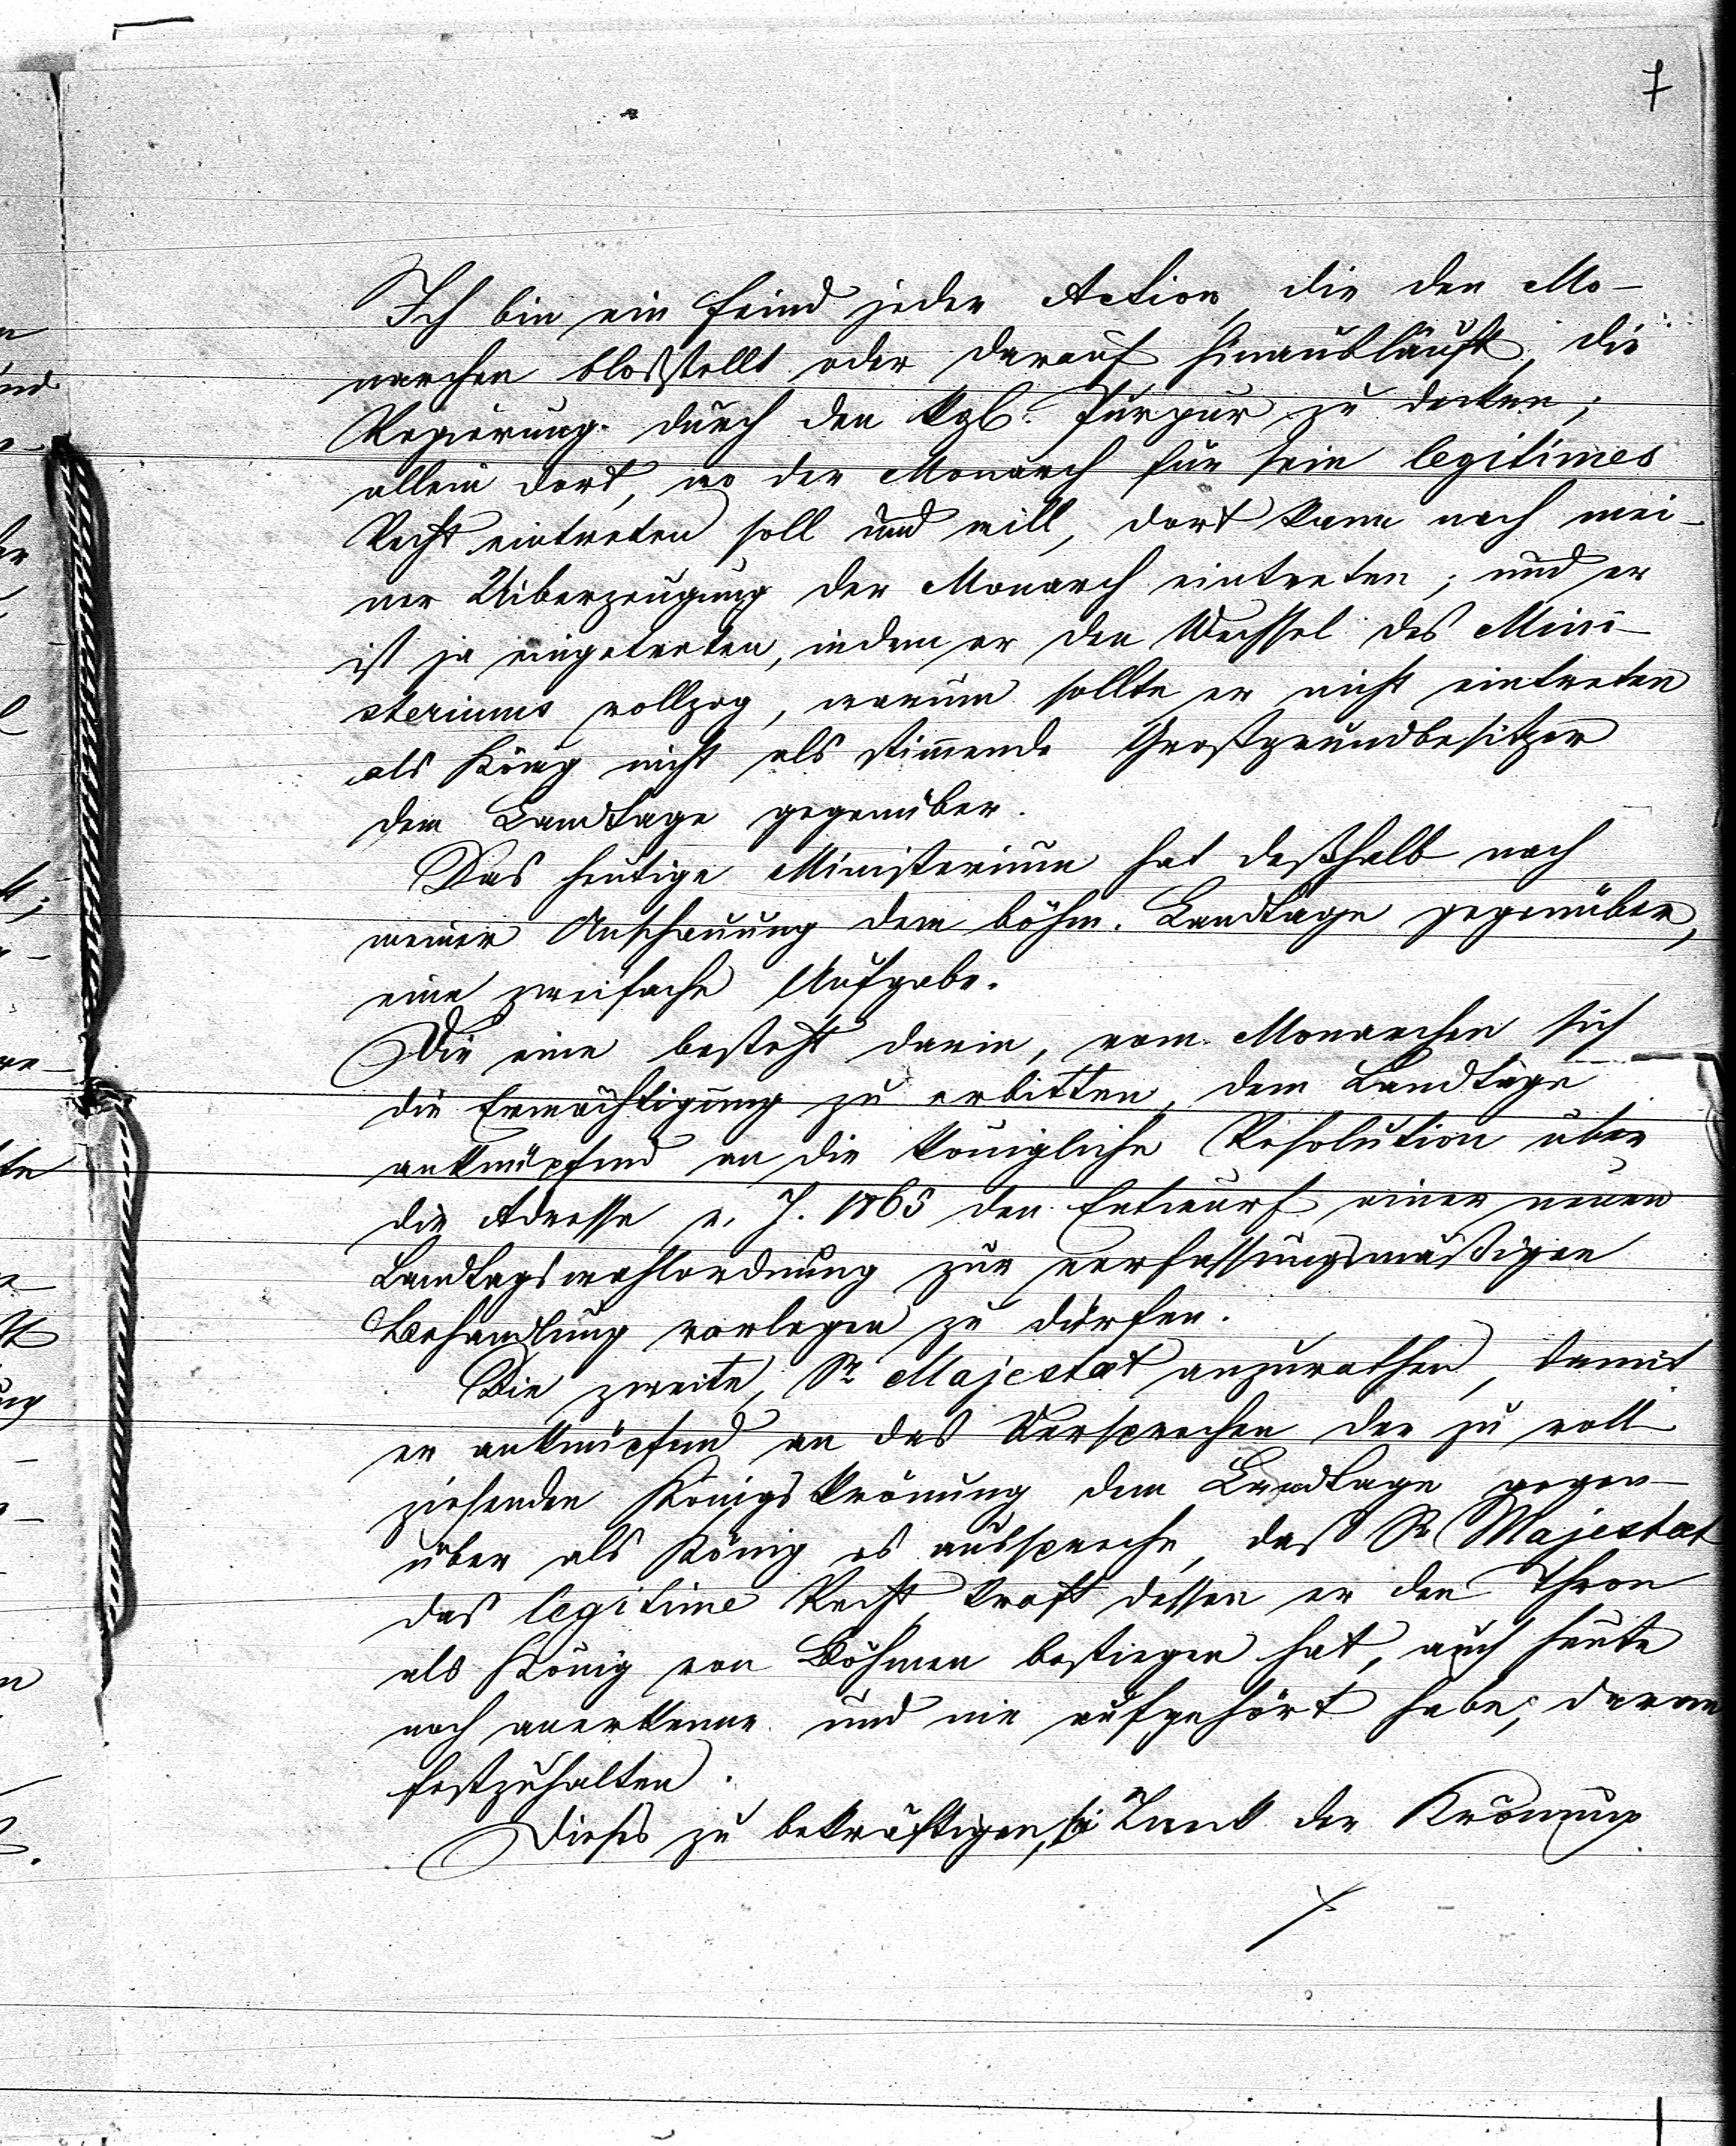 7
Ich bin ein Feind jeder Action, die den Mo-
narchen bloßstellt oder darauf hinausläuft, die
Regierung durch den kgl. Purpur zu decken;
allein dort, wo der Monarch für sein legitimes
Recht eintreten soll und will, dort kann nach mei-
ner Uiberzeugung der Monarch eintreten; und er
ist ja eingetreten, indem er den Wechsel des Mini-
steriums vollzog, warum sollte er nicht eintreten
als König nicht als stimmende Großgrundbesitzer
dem Landtage gegenüber.
Das heutige Ministerium hat deßhalb nach
meiner Anschauung dem böhm. Landtage gegenüber,
eine zweifache Aufgabe.
Die eine besteht darin, vom Monarchen sich
die Ermächtigung zu erbitten, dem Landtage
anknüpfend an die königliche Resolution über
die Adresse v. J. 1865 den Entwurf einer neuen
Landtagswahlordnung zur verfassungsmäßigen
Behandlung vorlegen zu dürfen.
Die zweite, Sr Majestät anzurathen, damit
er anknüpfend an das Versprechen der zu voll
ziehenden Königskrönung dem Landtage gegen-
über als König es ausspreche, daß Sr Majestät
das legitime Recht, kraft dessen er den Thron
als König von Böhmen bestiegen hat, auch heute
noch anerkenne und nie aufgehört habe, daran
festzuhalten.
Dieses zu bekräftigen, sei Zweck der Krönung